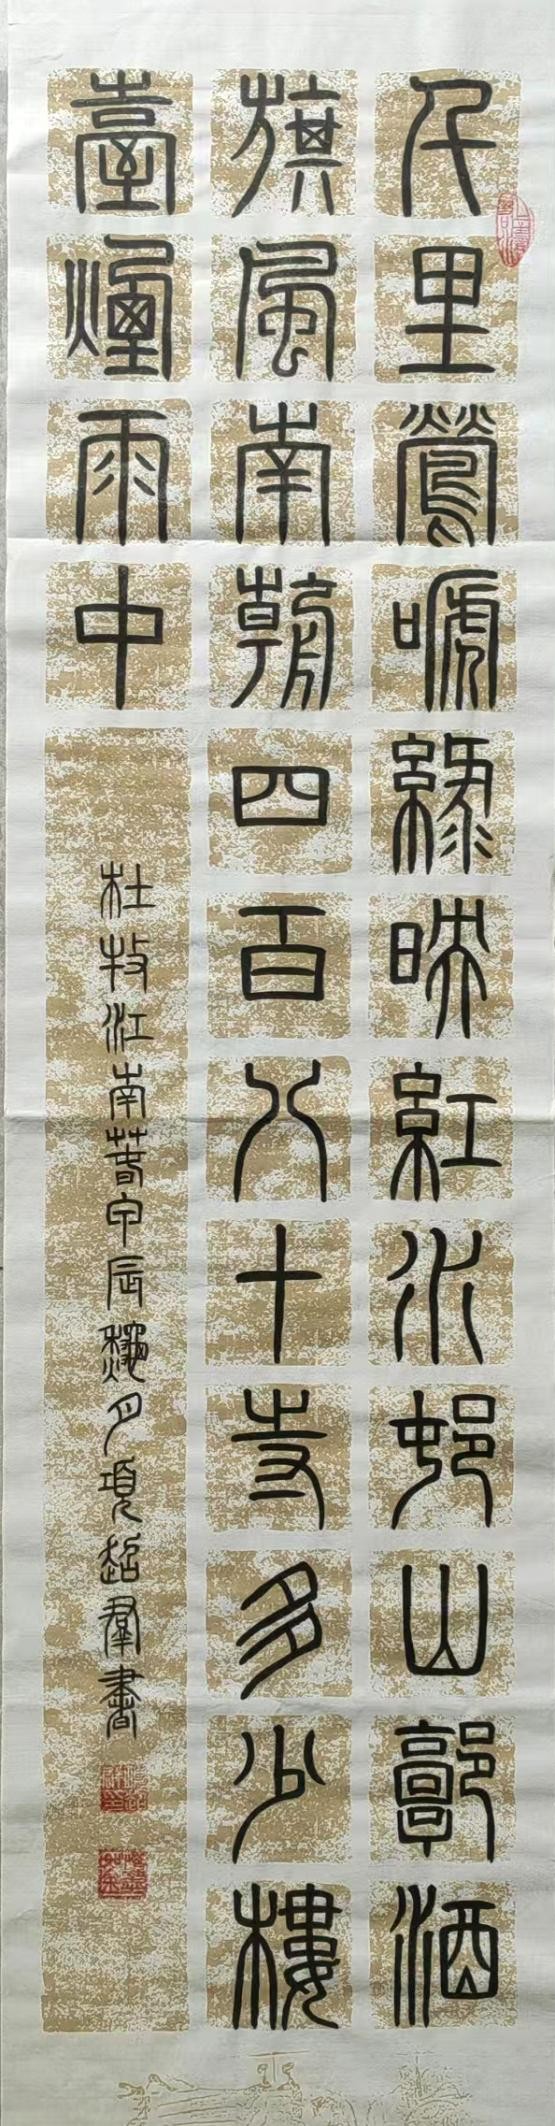 千里鶯嗁綠映紅水邨山郭酒
旗風南朝四百八十寺多少樓
臺煙雨中
杜牧江南春甲辰龝月項超羣書